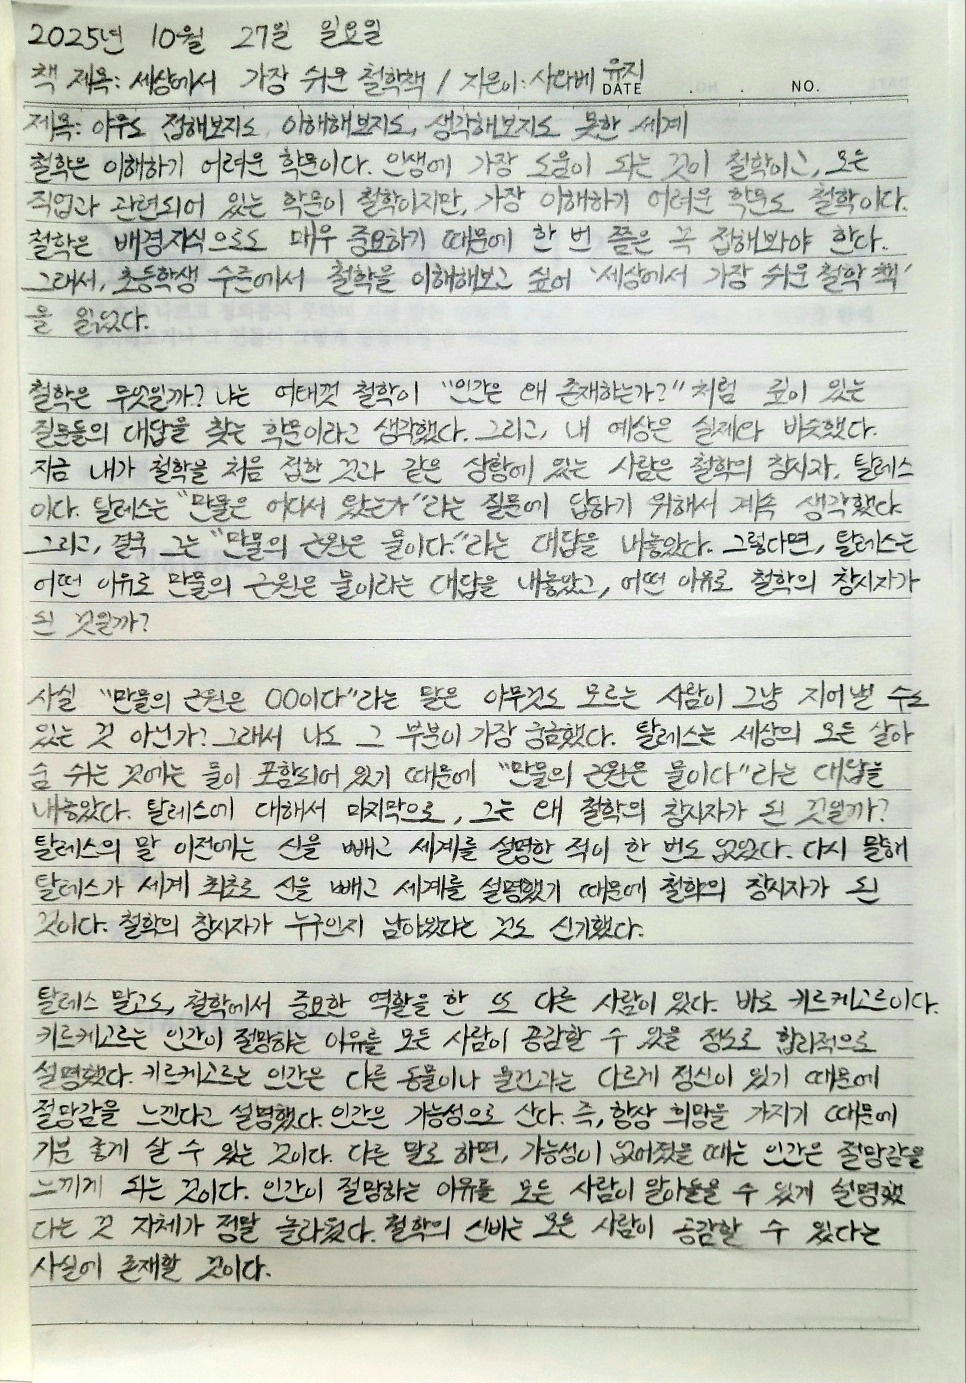 2025년 10월 27일 일요일
책 제목: 세상에서 가장 쉬운 철학책 / 지은이: 사와베 유지
DATE . . NO.
제목: 아무도 접해보지도, 이해해보지도, 생각해보지도 못한 세계
철학은 이해하기 어려운 학문이다. 인생에 가장 도움이 되는 것이 철학이고, 모든
직업과 관련되어 있는 학문이 철학이지만, 가장 이해하기 어려운 학문도 철학이다.
철학은 배경지식으로도 매우 중요하기 때문에 한 번 쯤은 꼭 접해봐야 한다.
그래서, 초등학생 수준에서 철학을 이해해보고 싶어 '세상에서 가장 쉬운 철학 책'
을 읽었다.
철학은 무엇일까? 나는 여태껏 철학이 "인간은 왜 존재하는가?" 처럼 깊이 있는
질문들의 대답을 찾는 학문이라고 생각했다. 그리고, 내 예상은 실제와 비슷했다.
지금 내가 철학을 처음 접한 것과 같은 상황에 있는 사람은 철학의 창시자, 탈레스
이다. 탈레스는 "만물은 어디서 왔는가"라는 질문에 답하기 위해서 계속 생각했다.
그리고, 결국 그는 "만물의 근원은 물이다."라는 대답을 내놓았다. 그렇다면, 탈레스는
어떤 이유로 만물의 근원은 물이라는 대답을 내놓았고, 어떤 이유로 철학의 창시자가
된 것일까?
사실 "만물의 근원은 OO이다"라는 말은 아무것도 모르는 사람이 그냥 지어낼 수도
있는 것 아닌가? 그래서 나도 그 부분이 가장 궁금했다. 탈레스는 세상의 모든 살아
숨 쉬는 것에는 물이 포함되어 있기 때문에 "만물의 근원은 물이다"라는 대답을
내놓았다. 탈레스에 대해서 마지막으로, 그는 왜 철학의 창시자가 된 것일까?
탈레스의 말 이전에는 신을 빼고 세계를 설명한 적이 한 번도 없었다. 다시 말해
탈레스가 세계 최초로 신을 빼고 세계를 설명했기 때문에 철학의 창시자가 된
것이다. 철학의 창시자가 누구인지 남아왔다는 것도 신기했다.
탈레스 말고도, 철학에서 중요한 역할을 한 또 다른 사람이 있다. 바로 키르케고르이다.
키르케고르는 인간이 절망하는 이유를 모든 사람이 공감할 수 있을 정도로 합리적으로
설명했다. 키르케고르는 인간은 다른 동물이나 물건과는 다르게 정신이 있기 때문에
절망감을 느낀다고 설명했다. 인간은 가능성으로 산다. 즉, 항상 희망을 가지기 때문에
기분 좋게 살 수 있는 것이다. 다른 말로 하면, 가능성이 없어졌을 때는 인간은 절망감을
느끼게 되는 것이다. 인간이 절망하는 이유를 모든 사람이 알아들을 수 있게 설명했
다는 것 자체가 정말 놀라웠다. 철학의 신비는 모든 사람이 공감할 수 있다는
사실에 존재할 것이다.